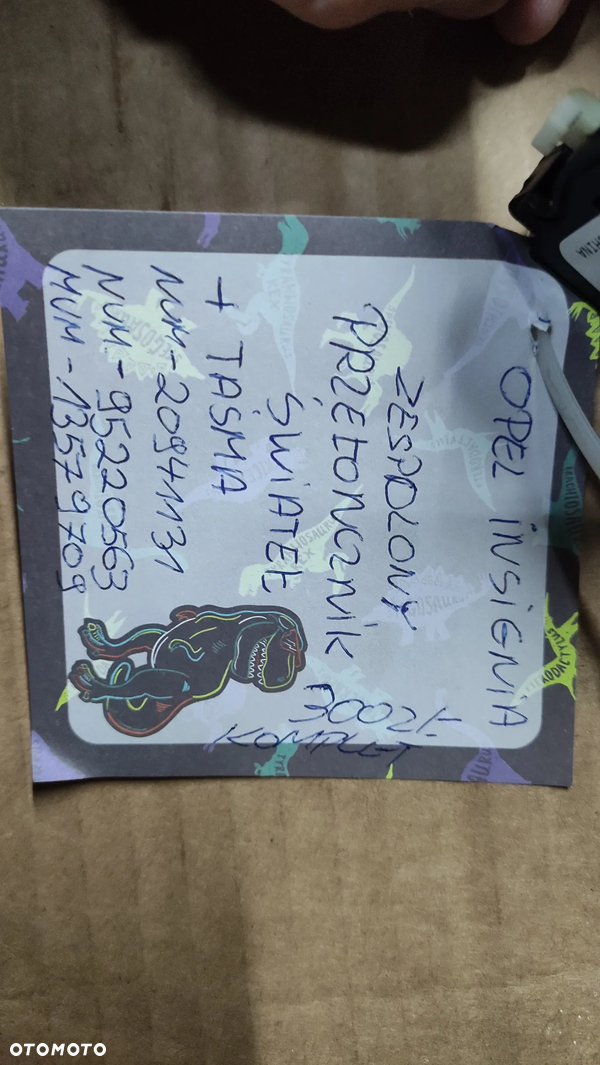 OPEL INSIGNIA
ZESPOLONY
PRZEŁĄCZNIK
ŚWIATEŁ
+ TAŚMA
NUM - 20941131
NUM - 95220563
NUM - 13579709
300Zł
KOMPLET
OTOMOTO